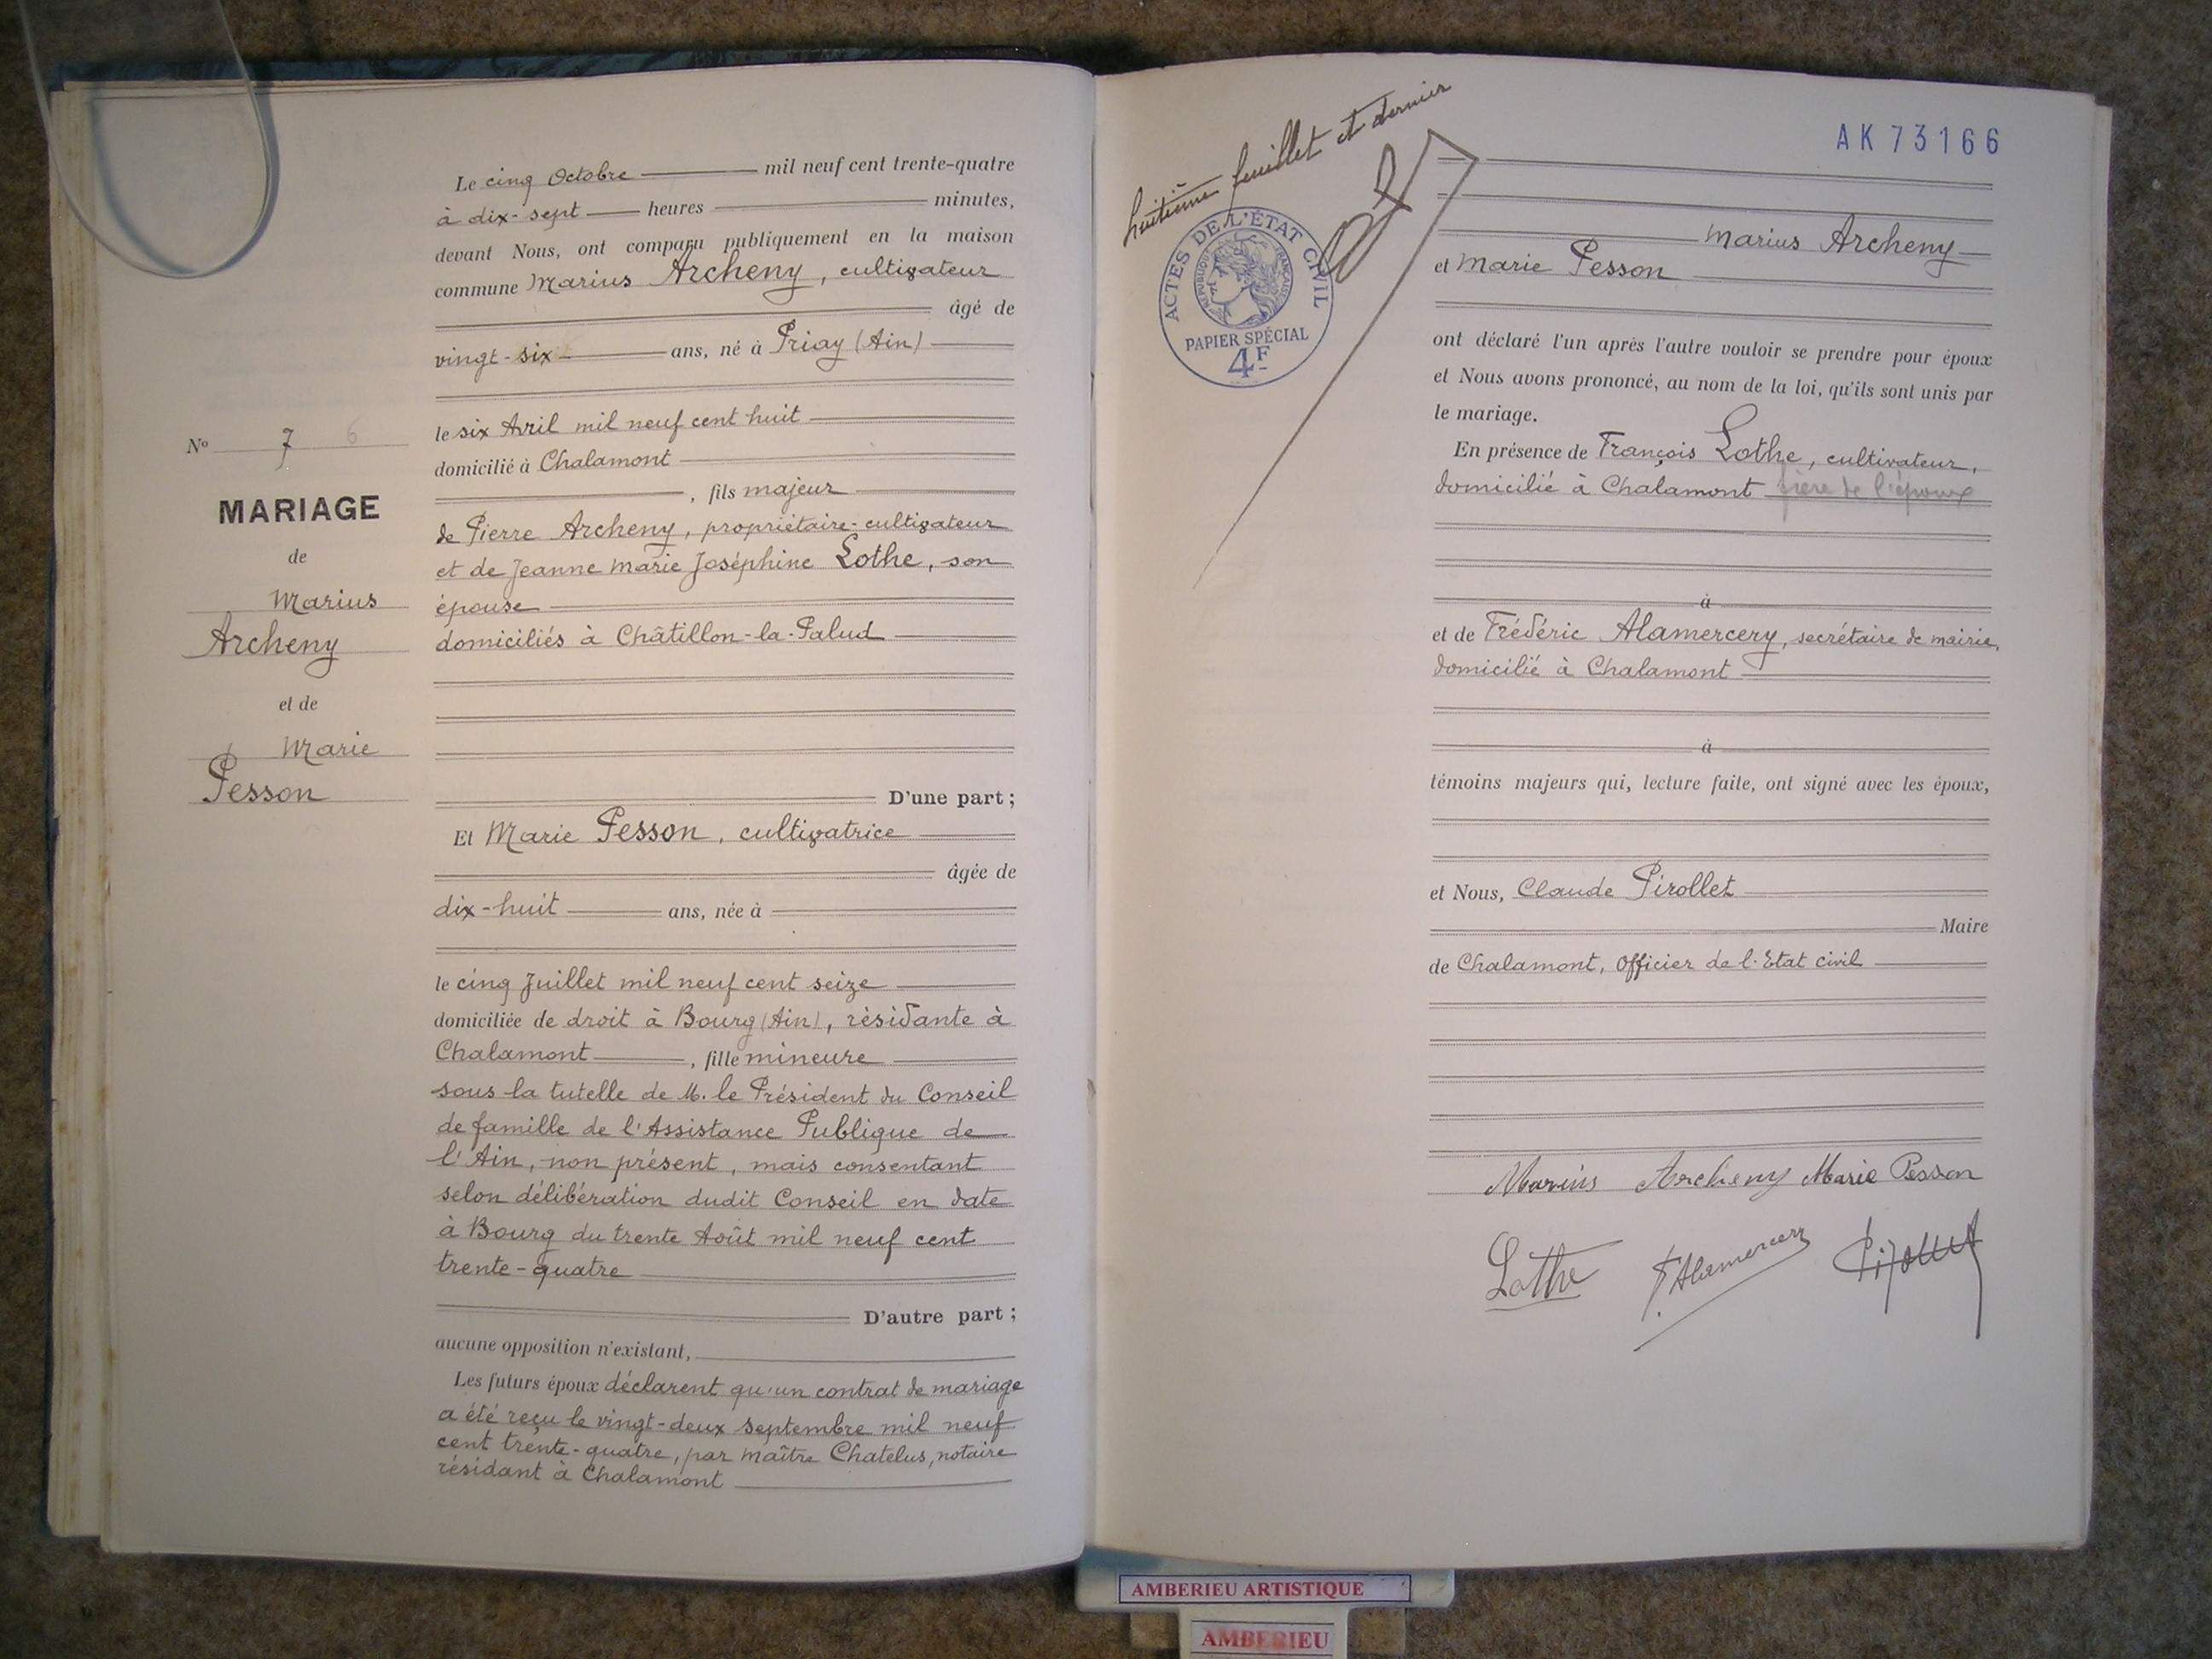 Le cinq Octobre mil neuf cent trente-quatre
à dix-sept heures minutes,
devant Nous, ont comparu publiquement en la maison
commune Marius Archeny, cultivateur
âgé de
vingt-six ans, né à Priay (Ain)
le six Avril mil neuf cent huit
domicilié à Chalamont
, fils majeur
de Pierre Archeny, propriétaire-cultivateur
et de Jeanne Marie Joséphine Lothe, son
épouse
domiciliés à Châtillon-la-Palud
D'une part ;
Et Marie Pesson, cultivatrice
âgée de
dix-huit ans, née à
le cinq Juillet mil neuf cent seize
domiciliée de droit à Bourg (Ain), résidante à
Chalamont, fille mineure
sous la tutelle de M. le Président du Conseil
de famille de l'Assistance Publique de
l'Ain, non présent, mais consentant
selon délibération dudit Conseil en date
à Bourg du trente Août mil neuf cent
trente-quatre
D'autre part ;
aucune opposition n'existant,
Les futurs époux déclarent qu'un contrat de mariage
a été reçu le vingt-deux Septembre mil neuf
cent trente-quatre, par Maître Chatelus, notaire
résidant à Chalamont
No 7 6
MARIAGE
de
Marius
Archeny
et de
Marie
Pesson
huitième feuillet et dernier
ACTES DE L'ÉTAT CIVIL
RÉPUBLIQUE FRANÇAISE
PAPIER SPÉCIAL
4F
AK73166
Marius Archeny
et Marie Pesson
ont déclaré l'un après l'autre vouloir se prendre pour époux
et Nous avons prononcé, au nom de la loi, qu'ils sont unis par
le mariage.
En présence de François Lothe, cultivateur,
domicilié à Chalamont frère de l'époux
à
et de Frédéric Alamercery, secrétaire de mairie,
domicilié à Chalamont
à
témoins majeurs qui, lecture faite, ont signé avec les époux,
et Nous, Claude Pirollet
Maire
de Chalamont, Officier de l'Etat civil
Marius Archeny Marie Pesson
Lothe F Alamercery Pirollet
AMBERIEU ARTISTIQUE
AMBERIEU